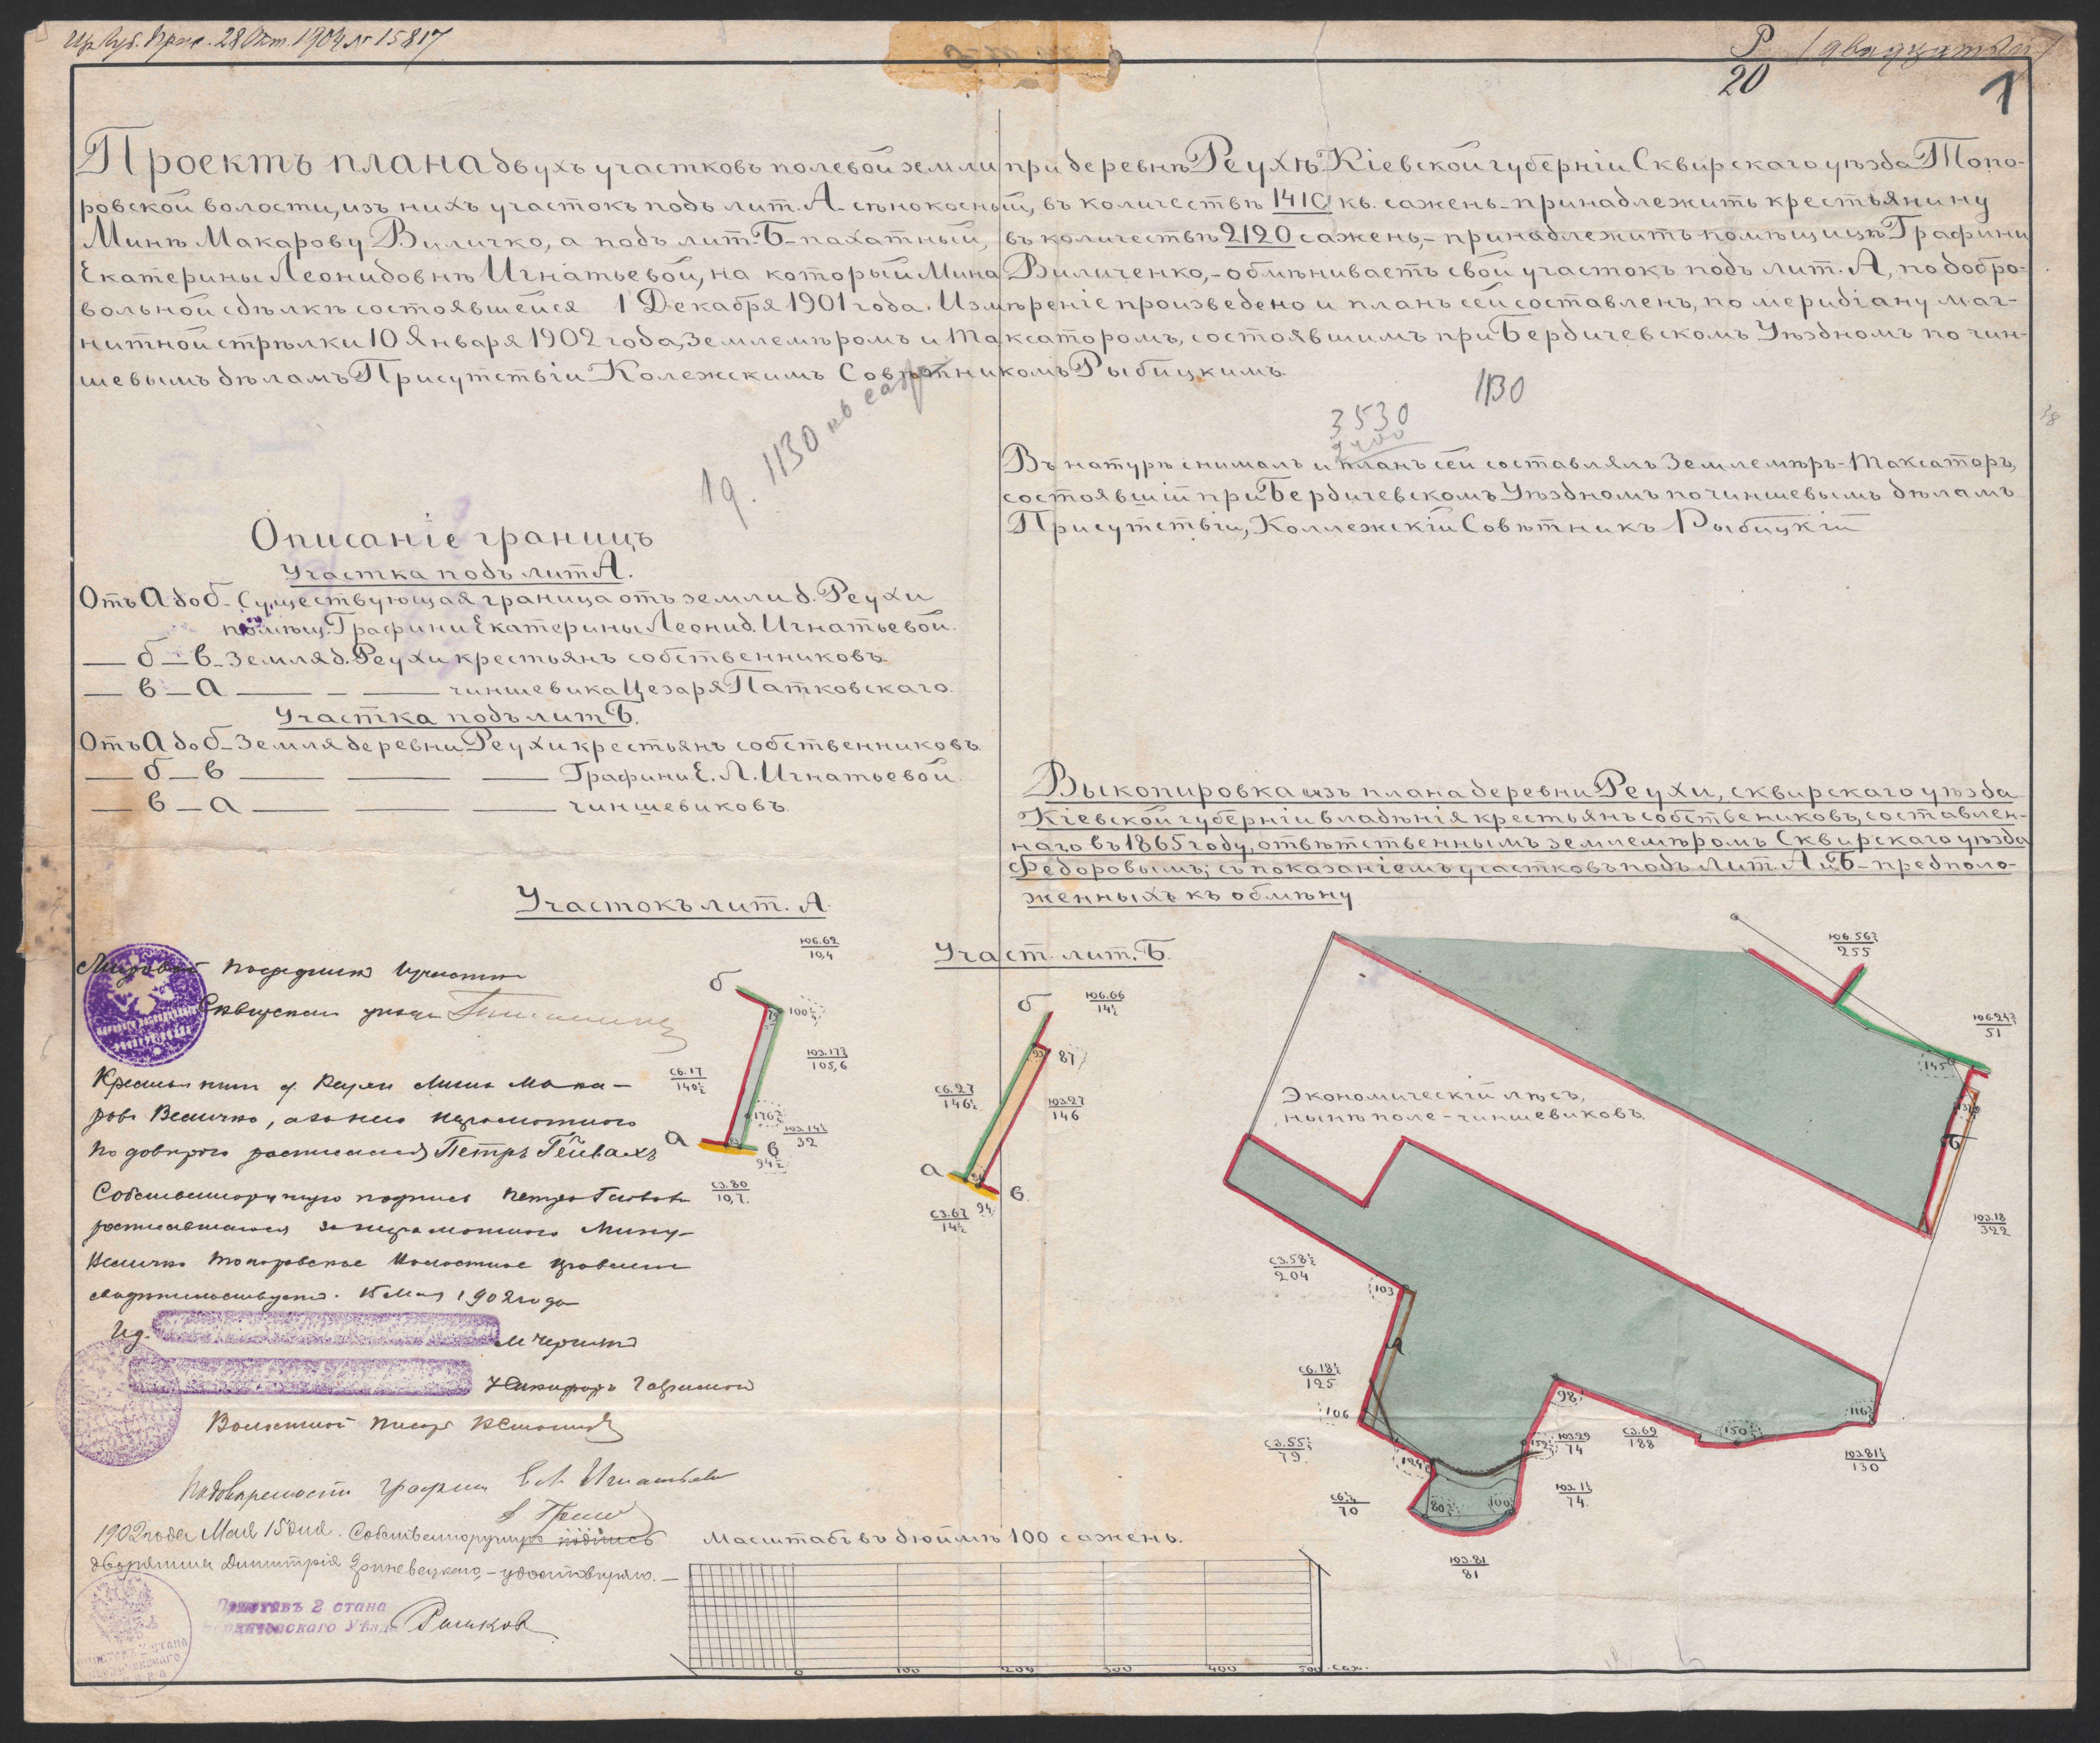 28 Окт. 1904 № 15817
Р /двадцатый/
20
1
Проектъ плана двухъ участковъ полевой земли при деревнѣ Реухѣ Кіевской губерніи Сквирскаго уѣзда Топо-
ровской волости, изъ нихъ участокъ подъ лит. А - сѣнокосный, въ количествѣ 1410 кв. сажень - принадлежитъ крестьянину
Минѣ Макарову Виличко, а подъ лит. Б - пахатный, въ количествѣ 2120 сажень, - принадлежитъ помѣщицѣ Графини
Екатерины Леонидовнѣ Игнатьевой, на который Мина Виличенко, - обмѣниваетъ свой участокъ подъ лит. А, по добро-
вольной сдѣлкѣ состоявшейся 1 Декабря 1901 года. Измѣреніе произведено и планъ сей составленъ, по меридіану маг-
нитной стрѣлки 10 Января 1902 года, Землемѣромъ и Таксаторомъ, состоявшимъ при Бердичевскомъ Уѣздномъ по чин-
шевымъ дѣламъ Присутствіи Колежскимъ Совѣтникомъ Рыбицкимъ.
1130
3530
1130 кв саж
Въ натурѣ снималъ и планъ сей составлялъ Землемѣръ-Таксаторъ,
состоявшій при Бердичевскомъ Уѣздномъ по чиншевымъ дѣламъ
Присутствіи, Коллежскій Совѣтникъ Рыбицкій
Описаніе границъ
Участка подъ лит А.
Отъ а до б - Существующая граница отъ земли д. Реухи
помѣщ. Графини Екатерины Леонид. Игнатьевой.
— б — в - Земля д. Реухи крестьянъ собственниковъ.
— в — а — - — чиншевика Цезаря Патковскаго.
Участка подъ лит Б.
Отъ а до б - Земля деревни Реухи крестьянъ собственниковъ.
— б — в — — — Графини Е. Л. Игнатьевой.
— в — а — — — чиншевиковъ.
Выкопировка изъ плана деревни Реухи, сквирскаго уѣзда
Кіевской губерніи владѣнія крестьянъ собствениковъ, составлен-
наго въ 1865 году, отвѣтственнымъ землемѣромъ Сквирскаго уѣзда
Федоровымъ; съ показаніемъ участковъ подъ Лит. А и Б - предполо-
женныхъ къ обмѣну
Участокъ лит. А.
Участ. лит. Б.
ЮВ.62
10,4
б
100½
ЮЗ.17¾
105,6
СВ.17
140½
176¾
ЮЗ.14½
32
а
в
94½
СЗ.80
10,7
б
ЮВ.66
14½
93
87
СВ.27
146½
ЮЗ.27
146
а
в
94
СЗ.67
14½
ЮВ.56¾
255
ЮВ.24¾
51
145
Б
ЮЗ.18
322
Экономическій лѣсъ,
нынѣ поле - чиншевиковъ.
СЗ.58½
204
103
А
СВ.18½
125
106
СЗ.55½
79
124
98
ЮЗ.29
74
СЗ.69
188
150
116
ЮЗ.81½
130
70
80
100
ЮЗ.1½
74
ЮЗ.81
81
Мировой Посредникъ участка
Сквирскаго уѣзда
Крестьянинъ д. Реухи Мина Мака-
ровъ Величко, а за него неграмотнаго
по довѣрію росписался Петръ Гейвахъ
Собственноручную подпись Петра
росписавшагося за неграмотнаго Мину
Величко Топоровское Волостное правленіе
свидѣтельствуетъ. 15 Мая 1902 года
Ид.
М Черний
Волостной Писарь
По довѣренности графини Е Л Игнатьевой
1902 года Мая 15 дня. Собственноручную подпись
дворянина Димитрія Гриневецкаго, - удостовѣряю. -
Приставъ 2 стана
Рашков
Масштабъ въ дюймѣ 100 сажень.
0 100 200 300 400 500 саж.